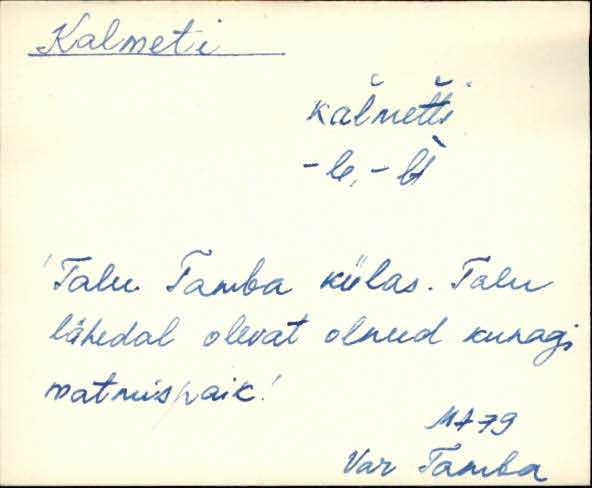 Kalmeti
kal̆mettĭ̮
-le, -lt
'Talu Tamba külas. Talu
lähedal olevat olnud kunagi
matmispaik.'
MA 79
Var Tamba